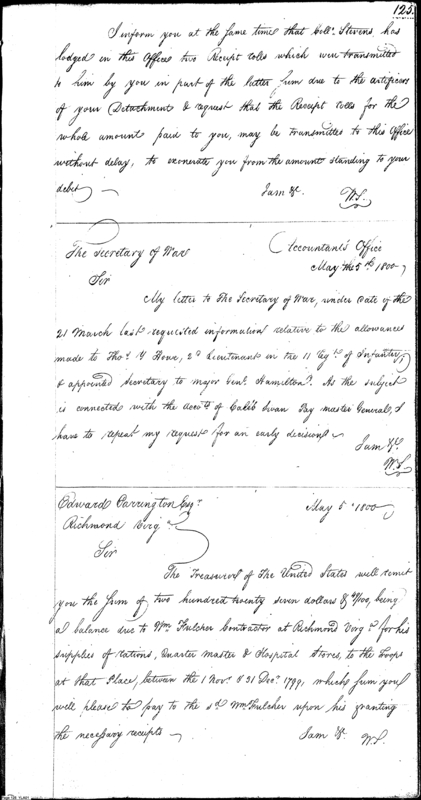 125.
I inform you at the same time that Coll. Stevens has
lodged in this Office two Receipt rolls which were transmitted
to him by you in part of the latter sum due to the artificers
of your Detachment & request that the Receipt rolls for the
whole amount paid to you, may be transmitted to this Office
without delay, to exonerate you from the amount standing to your
debit
I am &c. W.S.
The Secretary of War
Accountant's Office
May the 5th 1800
Sir
My letter to The Secretary of War, under date of the
21 March last requested information relative to the allowances
made to Thos. Y How, 2d Lieutenant in the 11 Regt. of Infantry,
& appointed Secretary to major Genl. Hamilton. As the subject
is connected with the accots. of Caleb Swan Pay master General, I
have to repeat my request for an early decision
I am &c.
W.S.
Edward Carrington Esqr.
May 5 1800
Richmond Virga.
Sir
The Treasurer of The United States will remit
you the sum of two hundred twenty seven dollars & /100, being
a balance due to Wm. Fulcher Contractor at Richmond Virga. for his
supplies of rations, Quarter Master & Hospital Stores, to the Troops
at that Place, between the 1 Novr. & 31 Decr. 1799, which sum you
will please to pay to the sd. Wm. Fulcher upon his granting
the necessary receipts
I am &c. W.S.